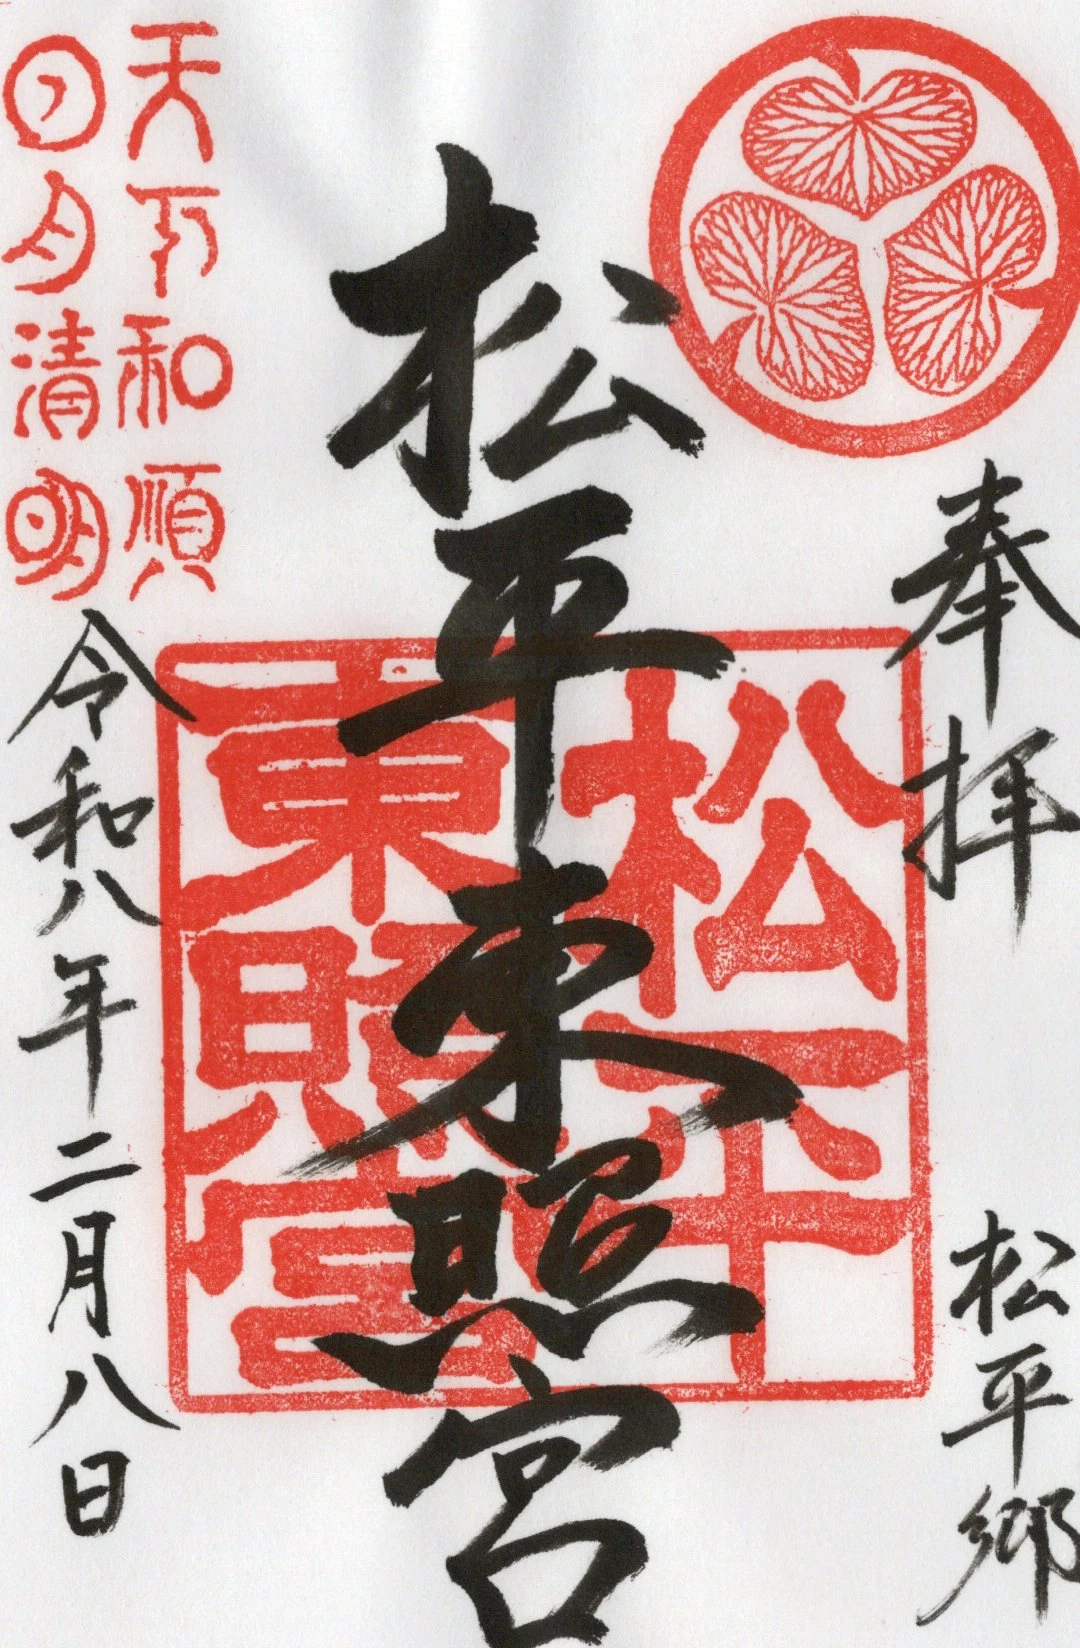 奉拝
松平郷
松平東照宮
松平
東照宮
天下和順
日月清明
令和八年二月八日